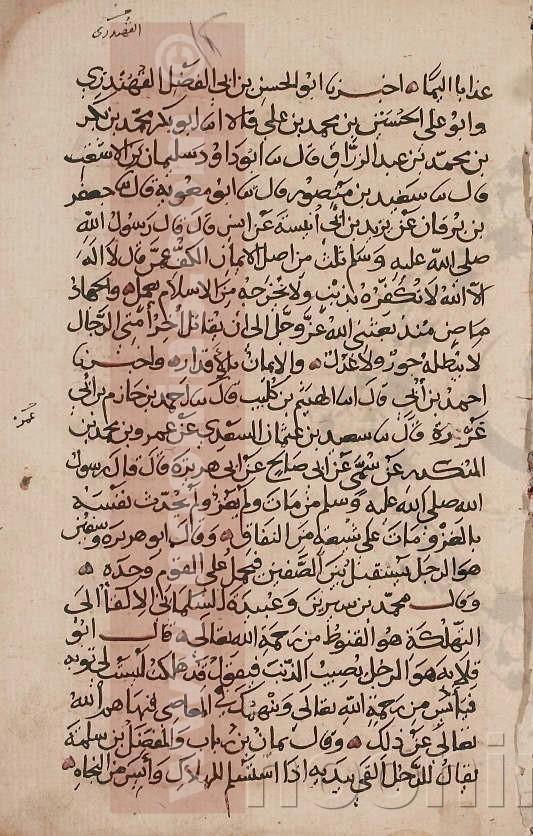 القهندري
عذابا اليما اخبرنا ابو الحسن بن ابي الفضل القهندزي
وابو علي الحسين بن محمد بن علي قالا انا ابو بكر محمد بن بكر
بن محمد بن عبد الرزاق قال نا ابو داود سليمان بن الاشعث
قال نا سعيد بن منصور قال نا ابو معوية قال نا جعفر
بن برقان عن يزيد بن ابي نسبة عن انس قال قال رسول الله
صلى الله عليه وسلم ثلث من اصل الايمان الكف عمن قال لا اله
الا الله لا نكفره بذنب ولا نخرجه من الاسلام بعمل والجهاد
ماض منذ بعثني الله عز وجل الى ان يقاتل اخر امتي الدجال
لا يبطله جور ولا عدل والايمان بالاقدار واخبرنا
احمد بن ابي قال انا الهيثم بن كليب قال نا احمد بن حازم بن ابي
غرزة قال نا سعيد بن عثمان السعيدي عن عمر بن محمد بن
عمر
المنكدر عن سمي عن ابي صالح عن ابي هريرة قال قال رسول
الله صلى الله عليه وسلم من مات ولم يغز ولم يحدث نفسه
بالغزو مات على شعبة من النفاق وقال ابو هريرة وسفين
هو الرجل يستقبل بين الصفين فيحمل على القوم وحده
وقال محمد بن سيرين وعبيدة السلماني الالقا الى
التهلكة هو القنوط من رحمة الله تعالى قال ابو
قلابة هو الرجل يصيب الذنب فيقول قد هلكت ليست لي توبة
فييأس من رحمة الله تعالى وينهمك في المعاصي فنهاهم الله
تعالى عن ذلك وقال يمان بن رباب والمفضل بن سلمة
يقال للرجل القى بيديه اذا استسلم للهلاك وأيس من النجاة
noorlib